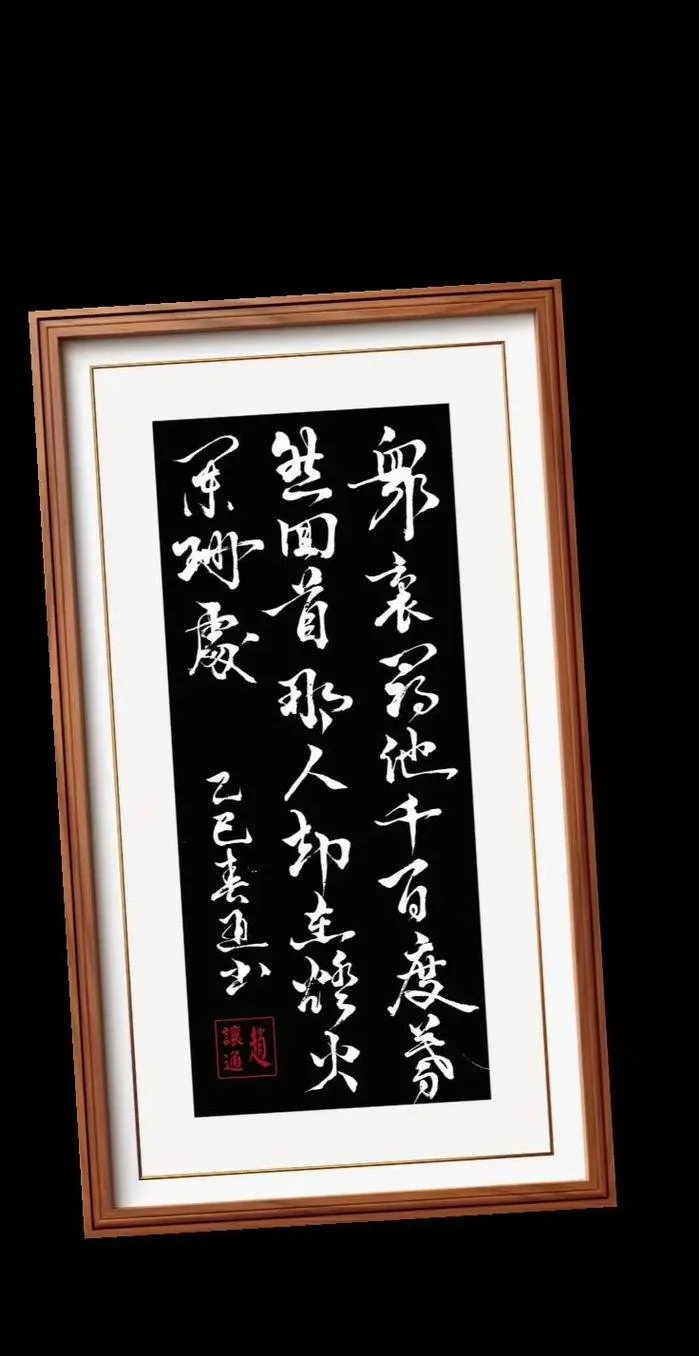 眾裏尋他千百度驀
然回首那人却在燈火
闌珊處
乙巳春通书
趙讓通